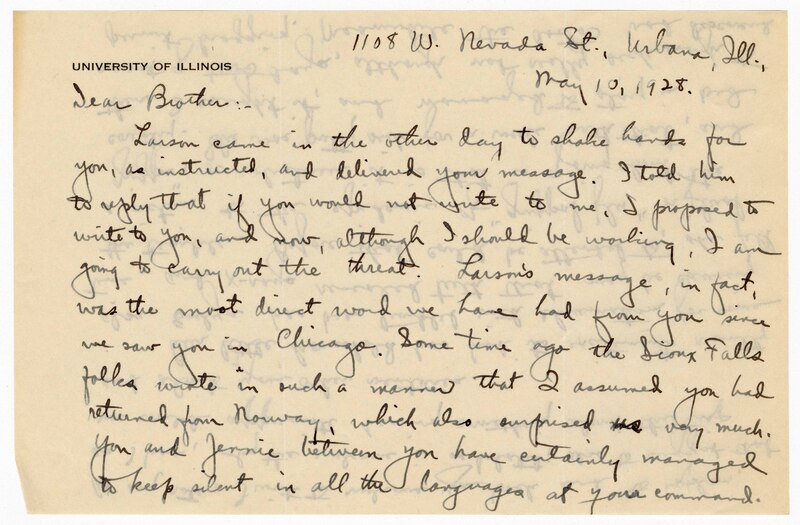 1108 W. Nevada St., Urbana, Ill.,
UNIVERSITY OF ILLINOIS
May 10, 1928.
Dear Brother:-
Larson came in the other day to shake hands for
you, as instructed, and delivered your message. I told him
to reply that if you would not write to me, I proposed to
write to you, and now, although I should be working, I am
going to carry out the threat. Larson's message, in fact,
was the most direct word we have had from you since
we saw you in Chicago. Some time ago the Sioux Falls
folks wrote in such a manner that I assumed you had
returned from Norway, which also surprised me very much.
You and Jennie between you have certainly managed
to keep silent in all the languages at your command.